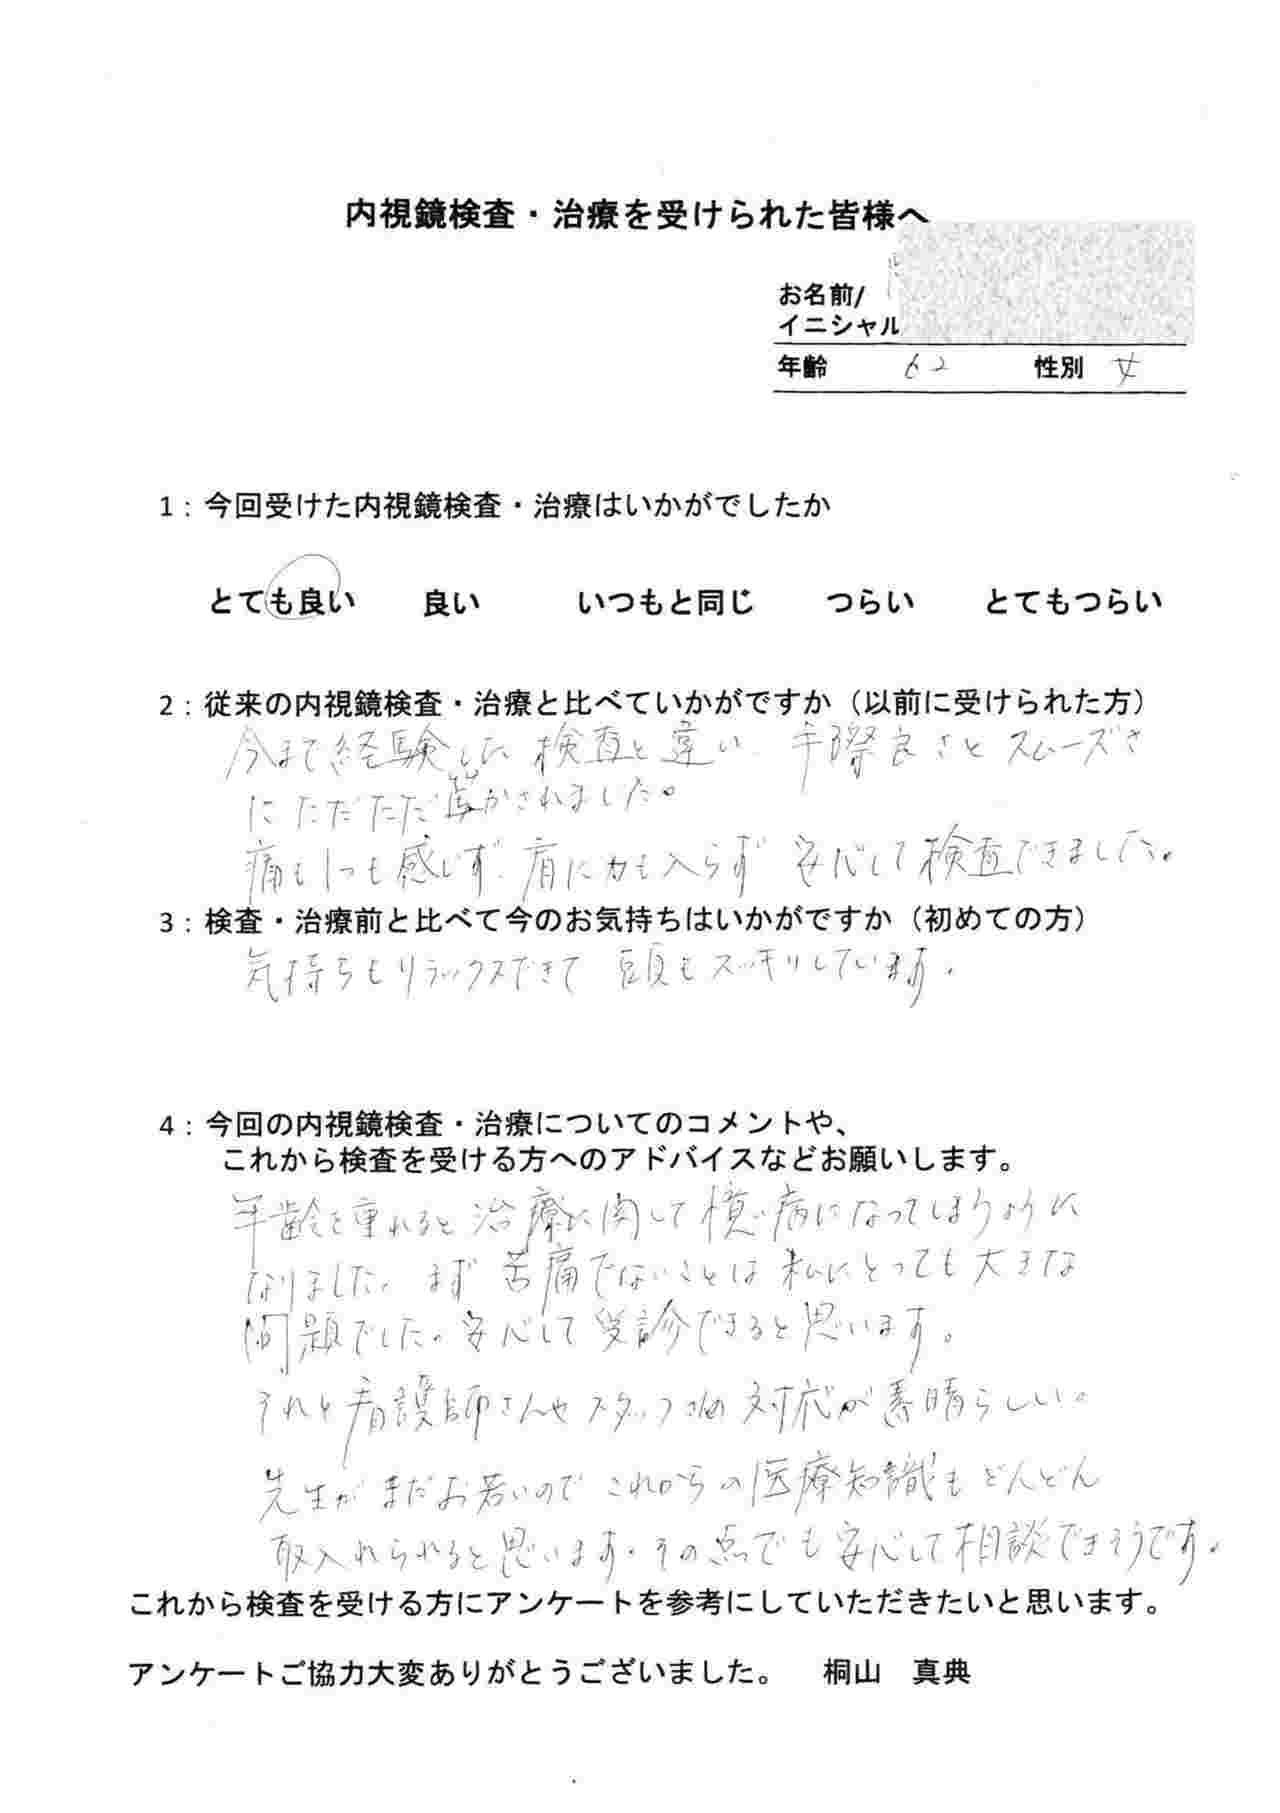 内視鏡検査・治療を受けられた皆様へ
お名前/
イニシャル
年齢 62 性別 女
1：今回受けた内視鏡検査・治療はいかがでしたか
とても良い 良い いつもと同じ つらい とてもつらい
2：従来の内視鏡検査・治療と比べていかがですか（以前に受けられた方）
今まで経験した検査と違い、手際良さとスムーズさ
にただただ驚かされました。
痛も1つも感じず、肩に力も入らず 安心して検査できました。
3：検査・治療前と比べて今のお気持ちはいかがですか（初めての方）
気持ちもリラックスできて 頭もスッキリしています。
4：今回の内視鏡検査・治療についてのコメントや、
これから検査を受ける方へのアドバイスなどお願いします。
年齢を重ねると治療に関して憶病になってしまうように
なりました。まず苦痛でないことは私にとっても大きな
問題でした。安心して受診できると思います。
それと看護師さんやスタッフさんの対応が素晴らしい。
先生がまだお若いので これからの医療知識もどんどん
取入れられると思います。その点でも安心して相談できそうです。
これから検査を受ける方にアンケートを参考にしていただきたいと思います。
アンケートご協力大変ありがとうございました。 桐山 真典